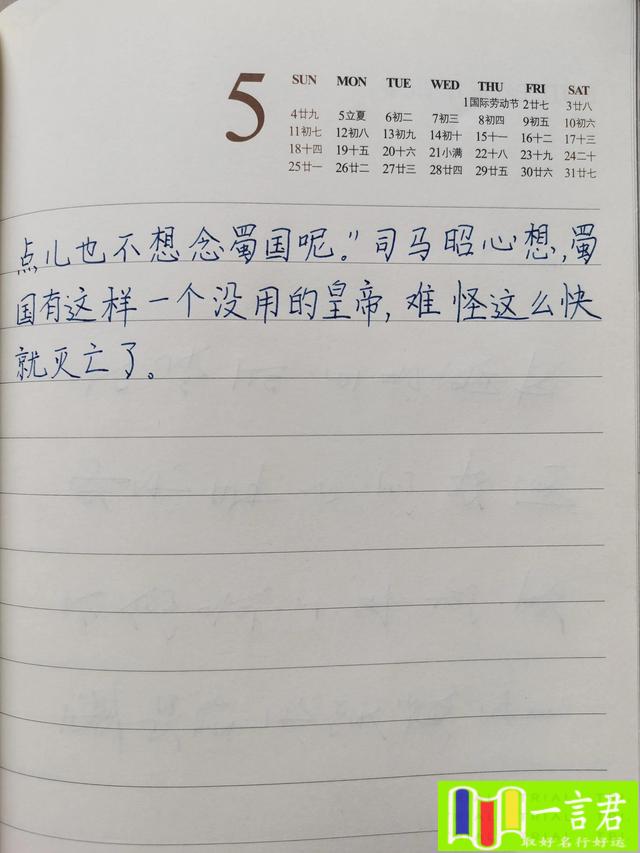 5
SUN MON TUE WED THU FRI SAT
1国际劳动节 2廿七 3廿八
4廿九 5立夏 6初二 7初三 8初四 9初五 10初六
11初七 12初八 13初九 14初十 15十一 16十二 17十三
18十四 19十五 20十六 21小满 22十八 23十九 24二十
25廿一 26廿二 27廿三 28廿四 29廿五 30廿六 31廿七
点儿也不想念蜀国呢。”司马昭心想,蜀
国有这样一个没用的皇帝,难怪这么快
就灭亡了。
一言君
取好名行好运